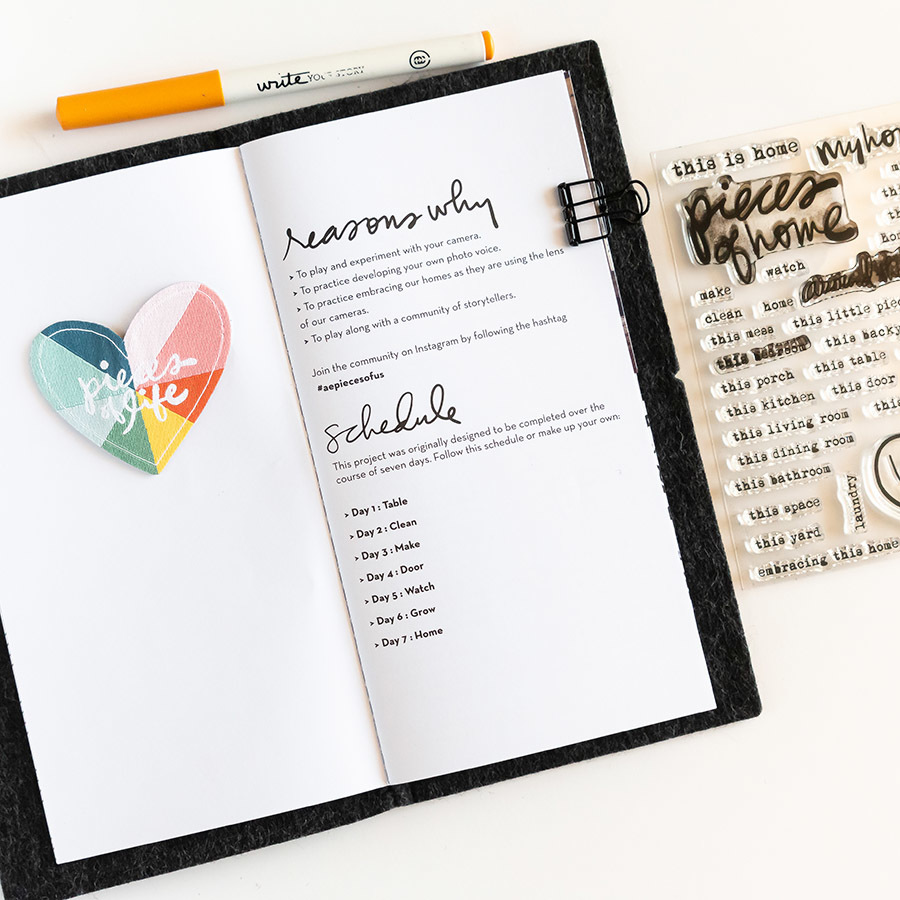 write YOUR STORY
pieces
of life
reasons why
> To play and experiment with your camera.
> To practice developing your own photo voice.
> To practice embracing our homes as they are using the lens
of our cameras.
> To play along with a community of storytellers.
Join the community on Instagram by following the hashtag
#aepiecesofus
schedule
This project was originally designed to be completed over the
course of seven days. Follow this schedule or make up your own:
> Day 1 : Table
> Day 2 : Clean
> Day 3 : Make
> Day 4 : Door
> Day 5 : Watch
> Day 6 : Grow
> Day 7 : Home
this is home
my
pieces
of home
watch
make
clean home this little
this mess this backy
this bedroom this table
this porch this door
this kitchen this
this living room
this dining room
this bathroom
this space
laundry
this yard
embracing this home